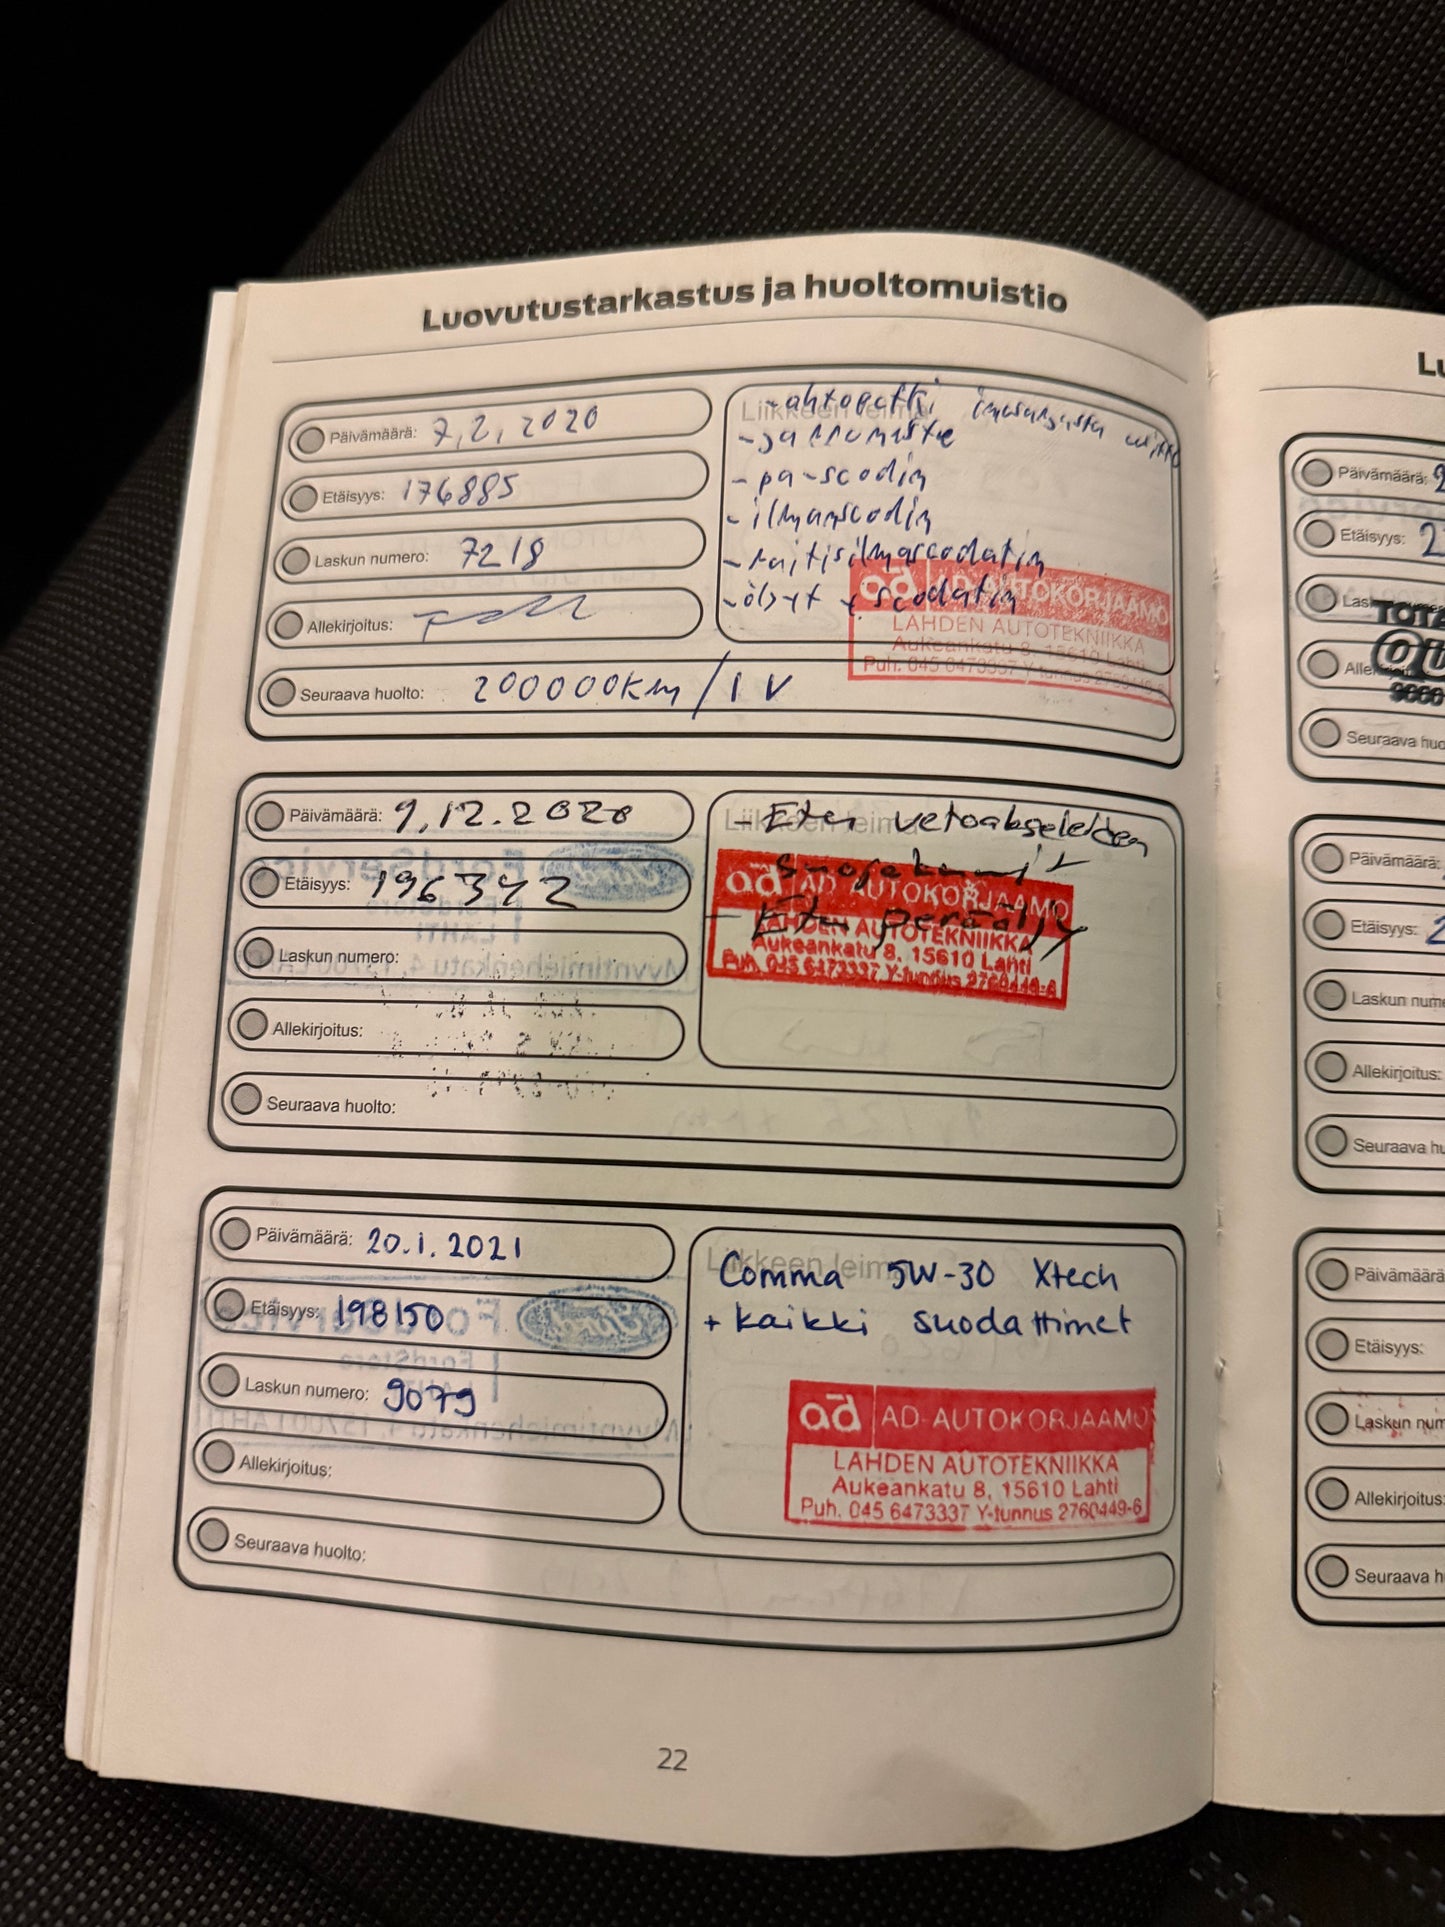 Luovutustarkastus ja huoltomuistio
Päivämäärä: 7.2.2020
Etäisyys: 176885
Laskun numero: 7218
Allekirjoitus:
Seuraava huolto: 200000km/1V
Liikkeen leima
- jarruneste
- pa-suodin
- ilmansuodin
- raitisilmasuodatin
- öljyt + suodatin
ad AD-AUTOKORJAAMO
LAHDEN AUTOTEKNIIKKA
Aukeankatu 8, 15610 Lahti
Puh. 045 6473337 Y-tunnus 2760449-6
Päivämäärä: 9.12.2020
Etäisyys: 196342
Laskun numero:
Allekirjoitus:
Seuraava huolto:
Liikkeen leima
- Etu vetoakseleiden
suojakumit
- Etu peräöljy
ad AD-AUTOKORJAAMO
LAHDEN AUTOTEKNIIKKA
Aukeankatu 8, 15610 Lahti
Puh. 045 6473337 Y-tunnus 2760449-6
Päivämäärä: 20.1.2021
Etäisyys: 198150
Laskun numero: 9079
Allekirjoitus:
Seuraava huolto:
Liikkeen leima
Comma 5W-30 Xtech
+ kaikki suodattimet
ad AD-AUTOKORJAAMO
LAHDEN AUTOTEKNIIKKA
Aukeankatu 8, 15610 Lahti
Puh. 045 6473337 Y-tunnus 2760449-6
22
Päivämäärä: 2
Etäisyys: 2
Seuraava huo
Päivämäärä:
Etäisyys: 2
Laskun nume
Allekirjoitus:
Seuraava hu
Päivämäärä
Etäisyys:
Laskun num
Allekirjoitus:
Seuraava h